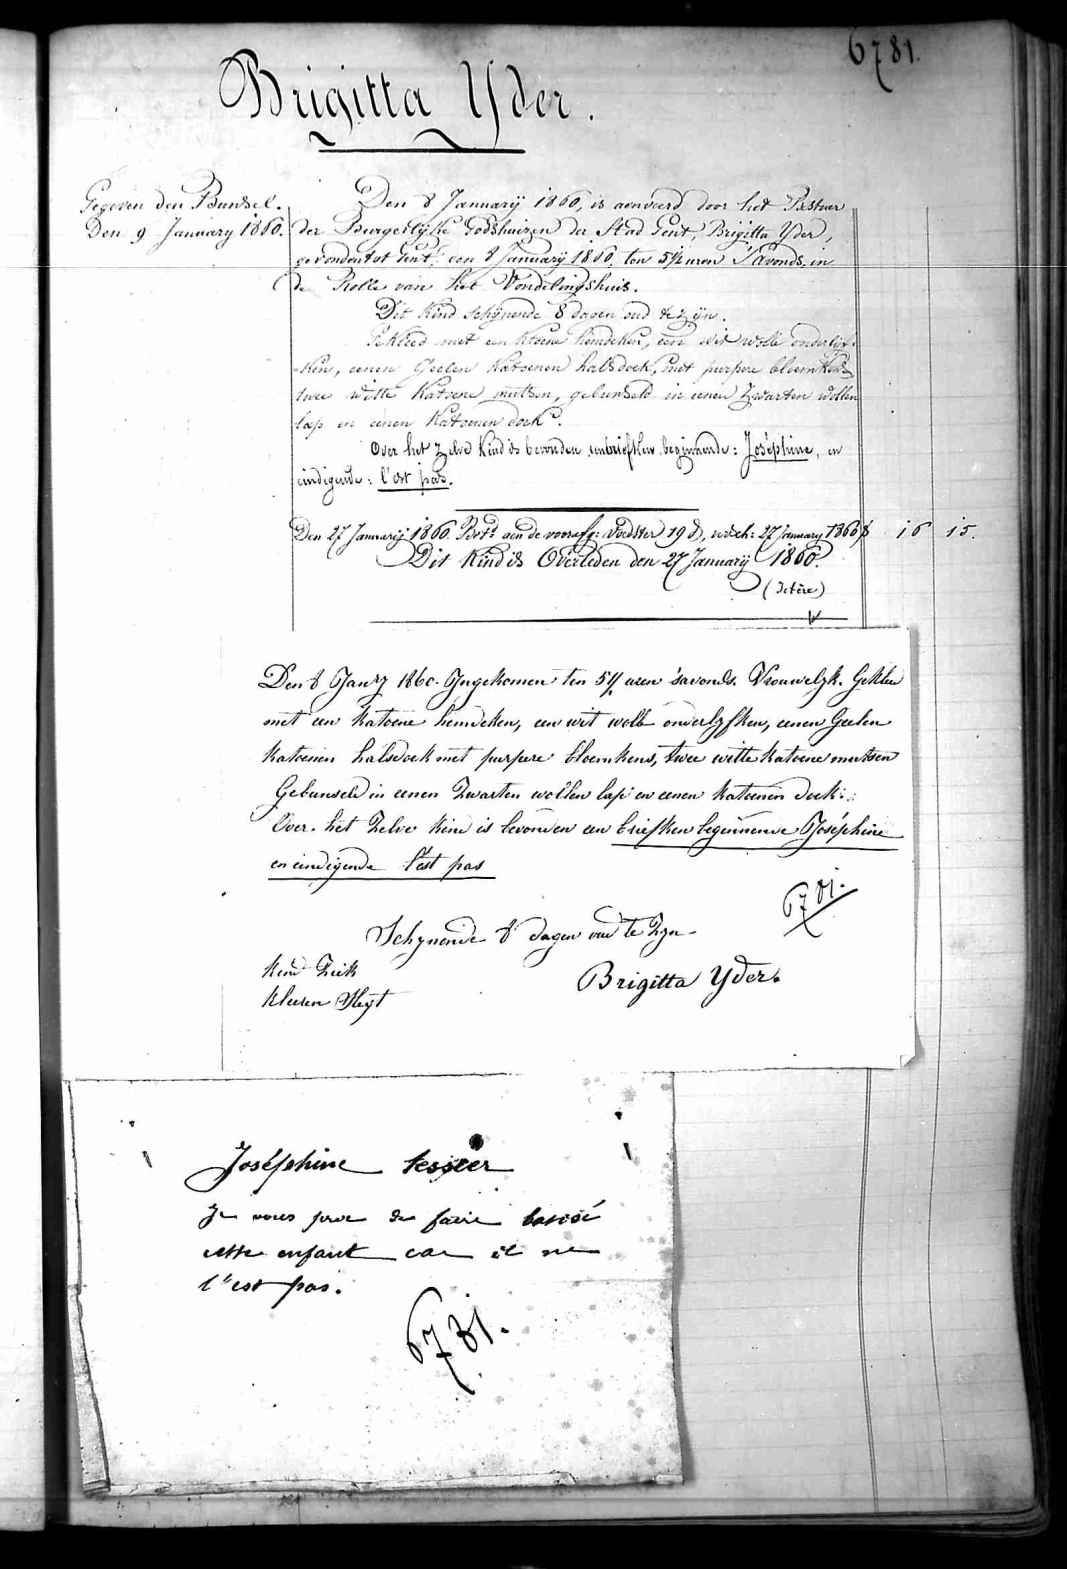 6781.
Brigitta Yder.
Gegeven den Bundsel.
Den 9 January 1860.
Den 8 Januarij 1860, is aenveerd door het Bestuur
der Burgerlyke Godshuizen der Stad Gent, Brigitta Yder,
gevonden tot Gent, den 8 Januarij 1860, ten 5½ uren 's avonds, in
de Rolle van het Vondelingshuis.
Dit Kind schynende 8 dagen oud te zyn.
Gekleed met een katoene hemdeken, een wit wolle onderlyf-
-ken, eenen Geelen Katoenen halsdoek, met purpere bloemkens
twee witte Katoene mutsen, gebunseld in eenen zwarten wollen
lap en eenen Katoenen doek.
Over het zelve Kind is bevonden een briefken beginnende: Joséphine, en
eindigende: l'est pas.
Den 27 Januarij 1860. Bet. aen de voorsz: Voedster 19 d, versch: 27 January 1860, 16 15.
Dit Kind is Overleden den 27 Januarij 1860.
Den 8 Janry 1860. Ingekomen ten 5½ uren s'avonds. Vrouwelyk. Gekleed
met een katoene hemdeken, een wit wolle onderlyfken, eenen Geelen
katoenen halsdoek met purpere bloemkens, twee witte katoene mutsen
Gebunseld in eenen Zwarten wollen lap en eenen katoenen doek.
Over het Zelve kind is bevonden een briefken beginnende Joséphine
en eindigende l'est pas
6781.
Schynende 8 dagen oud te Zyn
kind Ziek
kleeren Slegt
Brigitta Yder.
Joséphine tessier
Je vous prie de faire batisé
cette enfant car il ne
l'est pas.
6781.